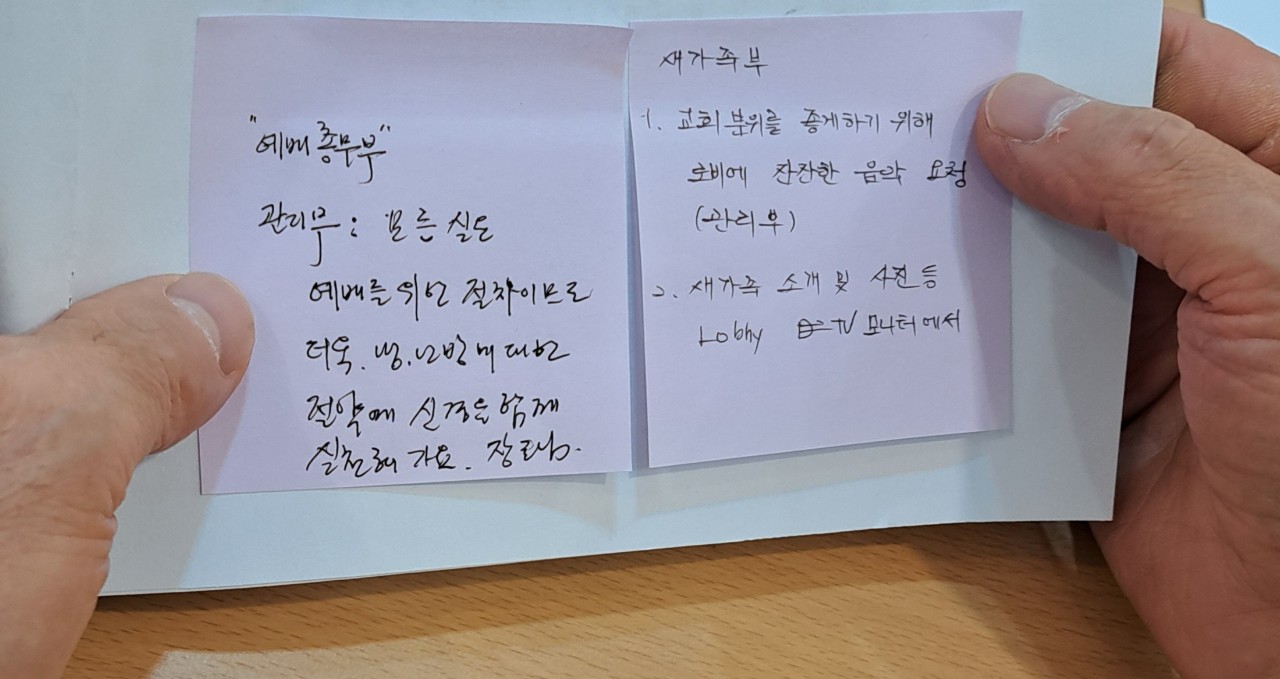 "예배 총무부"
관리부 : 모든 실도
예배를 위한 절차이므로
더욱. 냉.난방에 대한
절약에 신경을 함께
실천해 가요. 장로님.
새가족부
1. 교회 분위를 좋게하기 위해
로비에 잔잔한 음악 요청
(관리부)
2. 새가족 소개 및 사진 등
Lobby TV 모니터에서